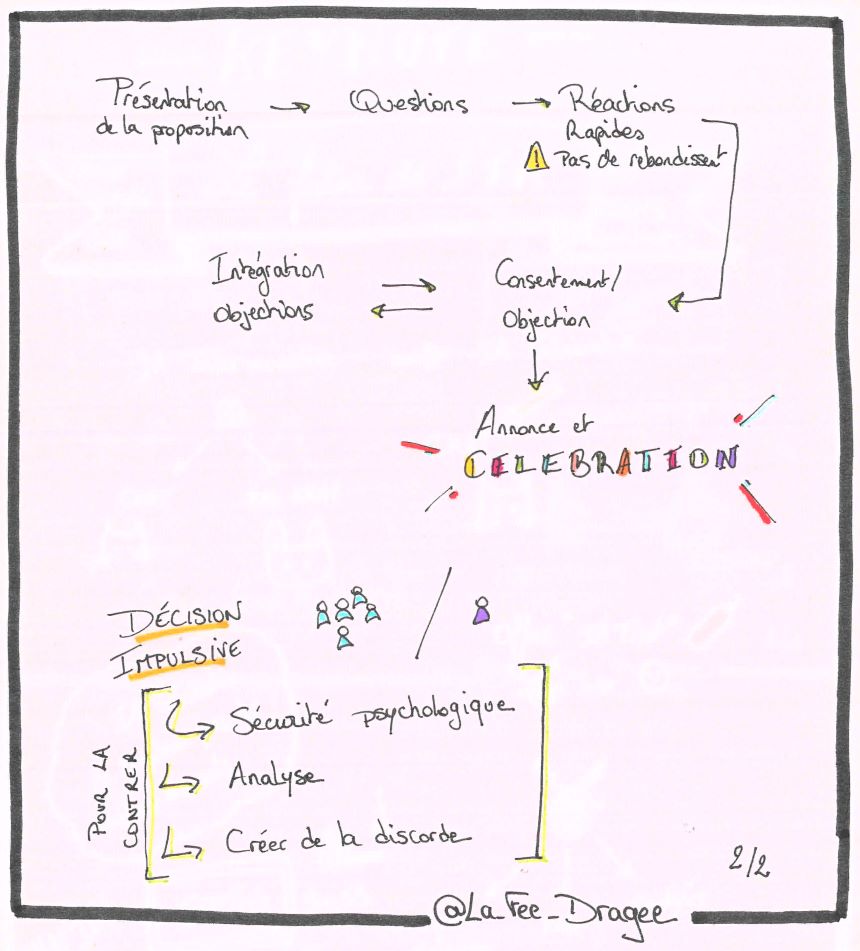 Présentation
de la proposition
Questions
Réactions
Rapides
Pas de rebondissent
Intégration
objections
Consentement/
Objection
Annonce et
CELEBRATION
DÉCISION
IMPULSIVE
POUR LA
CONTRER
Sécurité psychologique
Analyse
Créer de la discorde
2/2
@La_Fee_Dragee